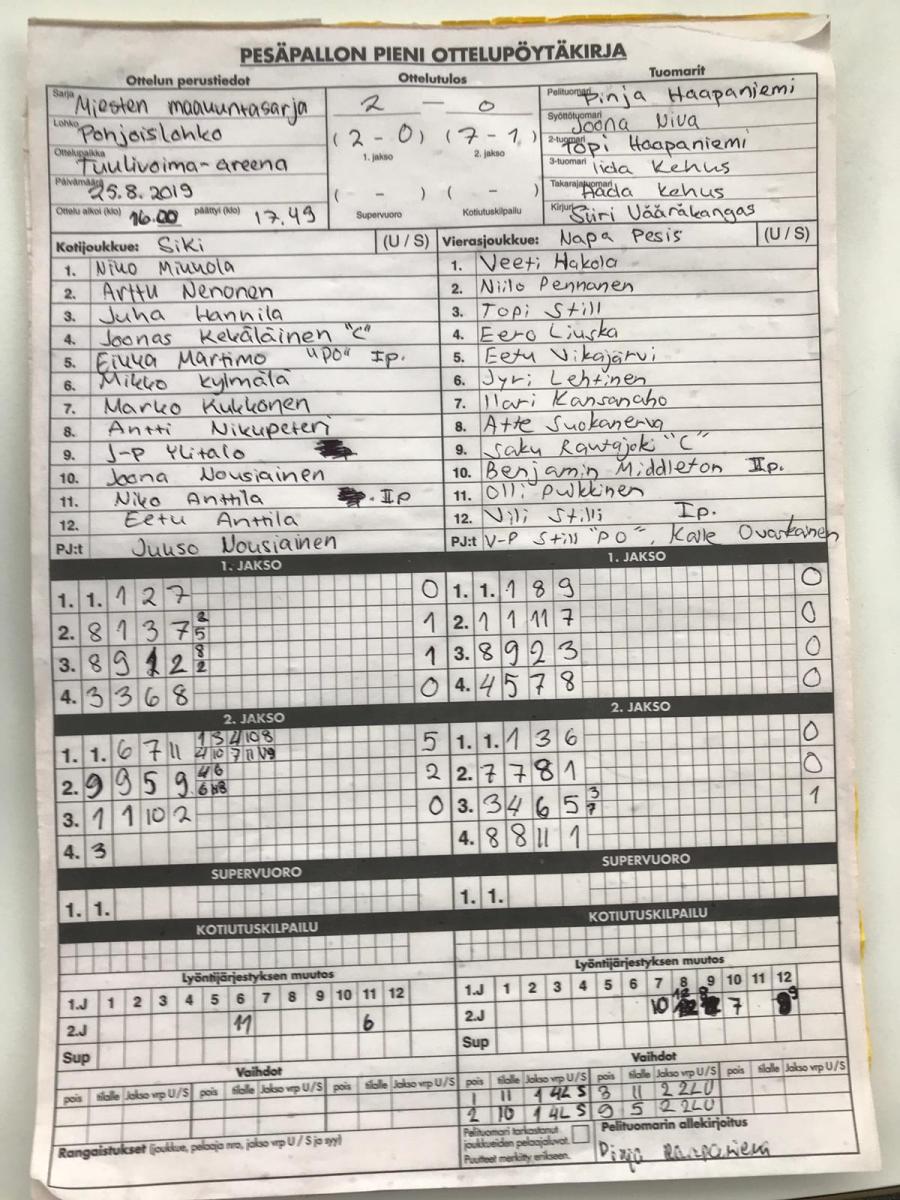 PESÄPALLON PIENI OTTELUPÖYTÄKIRJA
Ottelun perustiedot
Ottelutulos
Tuomarit
Sarja Miesten maakuntasarja
Lohko Pohjoislohko
Ottelupaikka Tuulivoima-areena
Päivämäärä 25.8.2019
Ottelu alkoi (klo) 16.00 päättyi (klo) 17.49
2 - 0
(2-0) (7-1)
1. jakso 2. jakso
( - ) ( - )
Supervuoro Kotiutuskilpailu
Pelituomari Pinja Haapaniemi
Syöttötuomari Joona Niva
2-tuomari Topi Haapaniemi
3-tuomari Iida Kehus
Takarajatuomari Aada Kehus
Kirjuri Siiri Vääräkangas
Kotijoukkue: SiKi (U / S)
1. Niko Mikkola
2. Arttu Nenonen
3. Juha Hannila
4. Joonas Kekäläinen "C"
5. Eikka Martimo "PO" Ip.
6. Mikko Kylmälä
7. Marko Kukkonen
8. Antti Nikupeteri
9. J-P Ylitalo
10. Joona Nousiainen
11. Niko Anttila . IIp
12. Eetu Anttila
PJ:t Juuso Nousiainen
Vierasjoukkue: Napa Pesis (U / S)
1. Veeti Hakola
2. Niilo Pennanen
3. Topi Still
4. Eero Liuska
5. Eetu Vikajärvi
6. Jyri Lehtinen
7. Ilari Kansanaho
8. Atte Suokanerva
9. Saku Rautajoki "C"
10. Benjamin Middleton IIp.
11. Olli Pulkkinen
12. Vili Still Ip.
PJ:t V-P Still "PO", Kalle Ovaskainen
1. JAKSO
1. 1. 1 2 7 0
2. 8 1 3 7 2 5 1
3. 8 9 1 2 8 2 1
4. 3 3 6 8 0
1. JAKSO
1. 1. 1 8 9 0
2. 1 1 11 7 0
3. 8 9 2 3 0
4. 4 5 7 8 0
2. JAKSO
1. 1. 6 7 11 1 3 4 10 8 5
4 10 7 11
2. 9 9 5 9 4 6 2
3. 1 1 10 2 0
4. 3
2. JAKSO
1. 1. 1 3 6 0
2. 7 7 8 1 0
3. 3 4 6 5 3 7 1
4. 8 8 11 1
SUPERVUORO
1. 1.
SUPERVUORO
1. 1.
KOTIUTUSKILPAILU
KOTIUTUSKILPAILU
Lyöntijärjestyksen muutos
1.J 1 2 3 4 5 6 7 8 9 10 11 12
2.J 11 6
Sup
Lyöntijärjestyksen muutos
1.J 1 2 3 4 5 6 7 8 9 10 11 12
2.J 10 12 8 7 9
Sup
Vaihdot
pois tilalle Jakso vrp U/S pois tilalle Jakso vrp U/S pois tilalle Jakso vrp U/S
Vaihdot
pois tilalle Jakso vrp U/S pois tilalle Jakso vrp U/S pois tilalle Jakso vrp U/S
1 11 1 4L S 3 11 2 2LU
2 10 1 4L S 9 5 2 2LU
Rangaistukset (joukkue, pelaaja nro, jakso vrp U / S ja syy)
Pelituomari tarkastanut
joukkueiden pelaajaluvat.
Puutteet merkitty erikseen.
Pelituomarin allekirjoitus
Pinja Haapaniemi